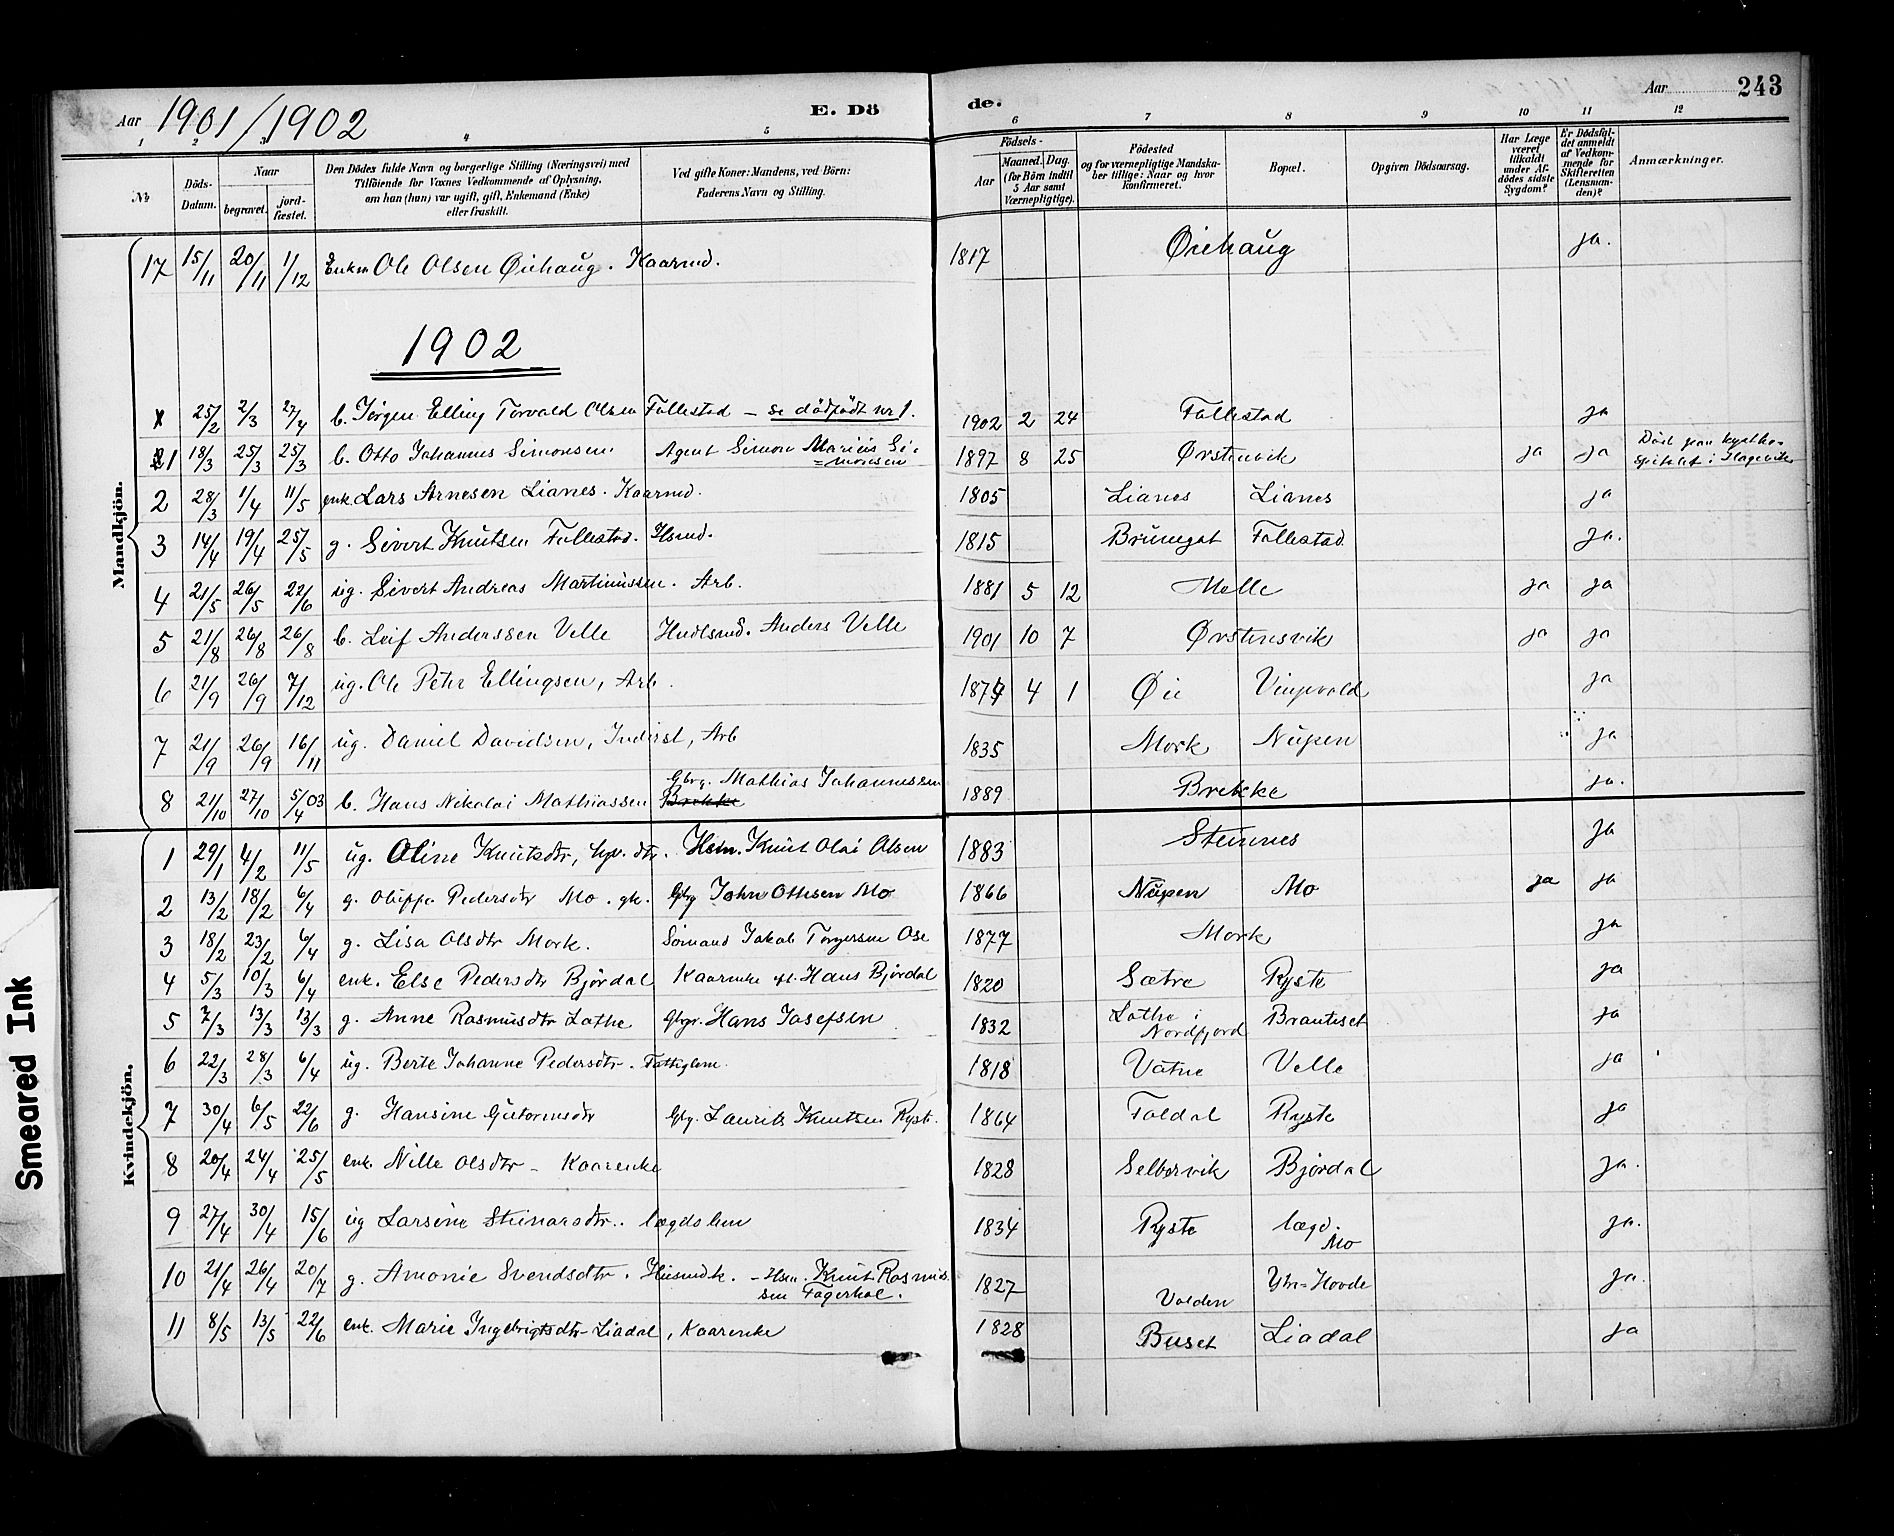 Aar 1901/1902 E. Dö de. Aar 243
1 2 3 4 5 6 7 8 9 10 11 12
№ Döds-Datum. Naar begravet. jord-fæstet. Den Dödes fulde Navn og borgerlige Stilling (Næringsvei) med Tilföiende for Voxnes Vedkommende af Oplysning, om han (hun) var ugift, gift, Enkemand (Enke) eller fraskilt. Ved gifte Koner: Mandens, ved Börn: Faderens Navn og Stilling. Födsels- Aar Maaned. Dag. (for Börn indtil 5 Aar samt Værnepligtige). Födested og for værnepligtige Mandskaber tillige: Naar og hvor konfirmeret. Bopæl. Opgiven Dödsaarsag. Har Læge været tilkaldt under Afdödes sidste Sygdom? Er Dödsfaldet anmeldt af Vedkommende for Skifteretten (Lensmanden)? Anmærkninger.
Mandkjön.
17 15/11 20/11 1/12 Enkm Ole Olsen Øiehaug. Kaarmd. 1817 Øiehaug ja.
1902
x 25/2 2/3 27/4 b. Jørgen Elling Torvald Olsen Follestad – se dødfødt nr 1. 1902 2 24 Follestad ja
1 18/3 25/3 25/3 b. Otto Johannes Simonsen Agent Simon Marius Si=monsen 1897 8 25 Ørstenvik ja ja Död paa kystho-spitalet i Hagevik
2 28/3 1/4 11/5 enk. Lars Arnesen Lianes. Kaarmd. 1805 Lianes Lianes ja
3 14/4 19/4 25/5 g. Sivert Knutsen Follestad. Hsmd. 1815 Bruneset Follestad ja.
4 21/5 26/5 22/6 ug. Sivert Andreas Martinussen. Arb. 1881 5 12 Melle ja ja
5 21/8 26/8 26/8 b. Leif Anderssen Velle Hndlsmd. Anders Velle 1901 10 7 Ørstensvik ja ja
6 21/9 26/9 7/12 ug. Ole Peter Ellingsen, Arb. 4 1 Øie ja
7 21/9 26/9 16/11 ug. Daniel Davidsen, Inderst, Arb 1835 Mork Nupen ja
8 21/10 27/10 5/4 03 b. Hans Nikolai Mathiassen Gbrg. Mathias Johannessen Brekke 1889 Brekke ja.
Kvindekjön.
1 29/1 4/2 11/5 ug. Oline Knutsdtr, dtr. Hsm. Knut Olai Olsen 1883 Steinnes ja
2 13/2 18/2 6/4 g. Oluffe Pedersdtr Mo. gk. Gbrg John Ottesen Mo 1866 Nupen Mo ja ja
3 18/2 23/2 6/4 g. Lisa Olsdtr Mork. Sømand Jakob Torgersen Ose 1877 Mork ja
4 5/3 10/3 6/4 enk. Else Pedersdtr Bjørdal Kaarenke ef. Hans Bjørdal 1820 Sætre Ryste ja
5 7/3 13/3 13/3 g. Anne Rasmusdtr Lothe Gbgr. Hans Josefsen 1832 Lothe i Nordfjord Brauteset ja
6 22/3 28/3 6/4 ug. Berte Johanne Pedersdtr. Fattiglem. 1818 Vatne Velle ja
7 30/4 6/5 22/6 g. Hansine Guttormsdtr Gbg. Laurits Knutsen Ryste. 1864 Foldal Ryste ja
8 20/4 24/4 25/5 enk. Nille Olsdtr – Kaarenke 1828 Selbervik Bjørdal ja.
9 27/4 30/4 15/6 ug Larsine Steinarsdtr. lægdslem 1834 Ryste lægd. Mo ja.
10 21/4 26/4 20/7 g. Amonie Svendsdtr. Husmdk. – Hsm. Knut Rasmus sen Fagerhol. 1827 Volden Ytre=Hovde ja.
11 8/5 13/5 22/6 enk. Marie Ingebrigtsdtr Liadal, Kaarenke 1828 Buset Liadal ja
Smeared Ink